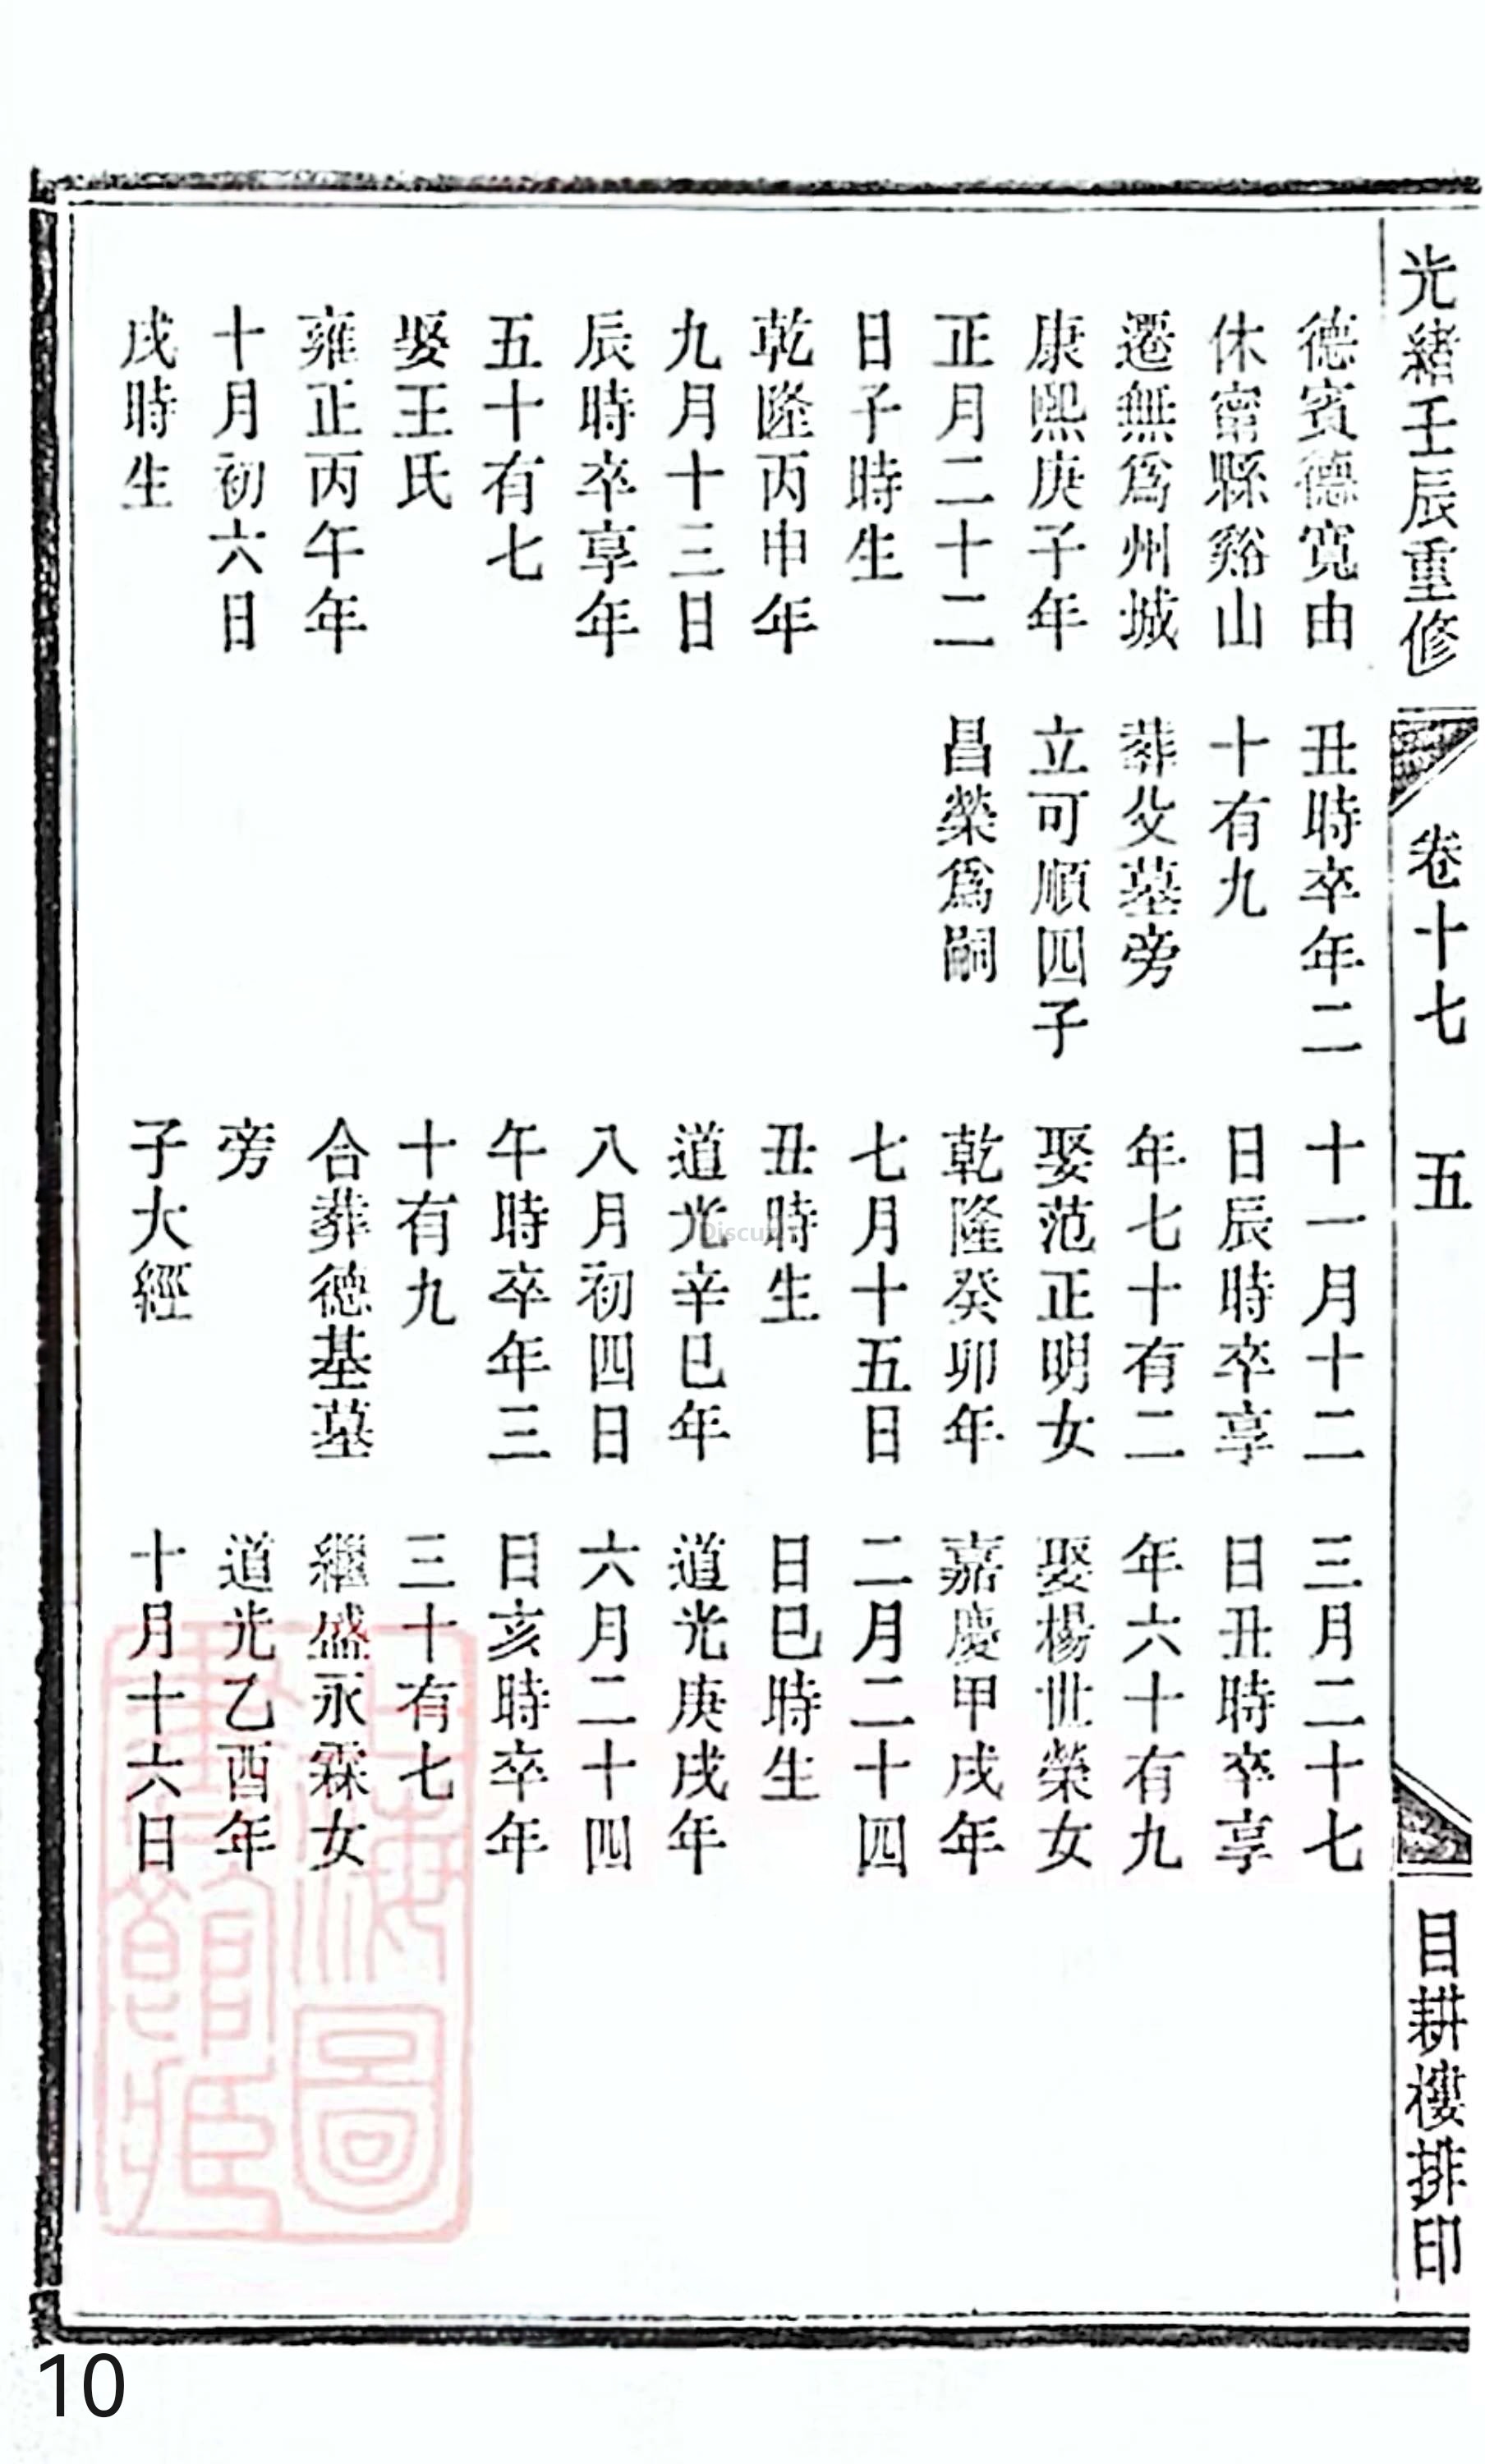 光緒壬辰重修
卷十七
五
目耕樓排印
德賓德寬由
休甯縣谿山
遷無爲州城
康熙庚子年
正月二十二
日子時生
乾隆丙申年
九月十三日
辰時卒享年
五十有七
娶王氏
雍正丙午年
十月初六日
戌時生
丑時卒年二
十有九
葬父墓旁
立可順四子
昌榮爲嗣
十一月十二
日辰時卒享
年七十有二
娶范正明女
乾隆癸卯年
七月十五日
丑時生
道光辛巳年
八月初四日
午時卒年三
十有九
合葬德基墓
旁
子大經
三月二十七
日丑時卒享
年六十有九
娶楊世榮女
嘉慶甲戌年
二月二十四
日巳時生
道光庚戌年
六月二十四
日亥時卒年
三十有七
繼盛永霖女
道光乙酉年
十月十六日
上海圖書館藏
Discuz
10